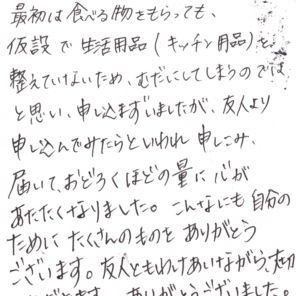 最初は食べる物をもらっても、
仮設で生活用品(キッチン用品)を
整えていないため、むだにしてしまうのでは
と思い、申し込まずいましたが、友人より
申し込んでみたらといわれ申しこみ、
届いて、おどろくほどの量に心が
あたたくなりました。こんなにも自分の
ために たくさんのものを ありがとう
ございます。友人ともわけあいながら、大切
ありがとうございました。